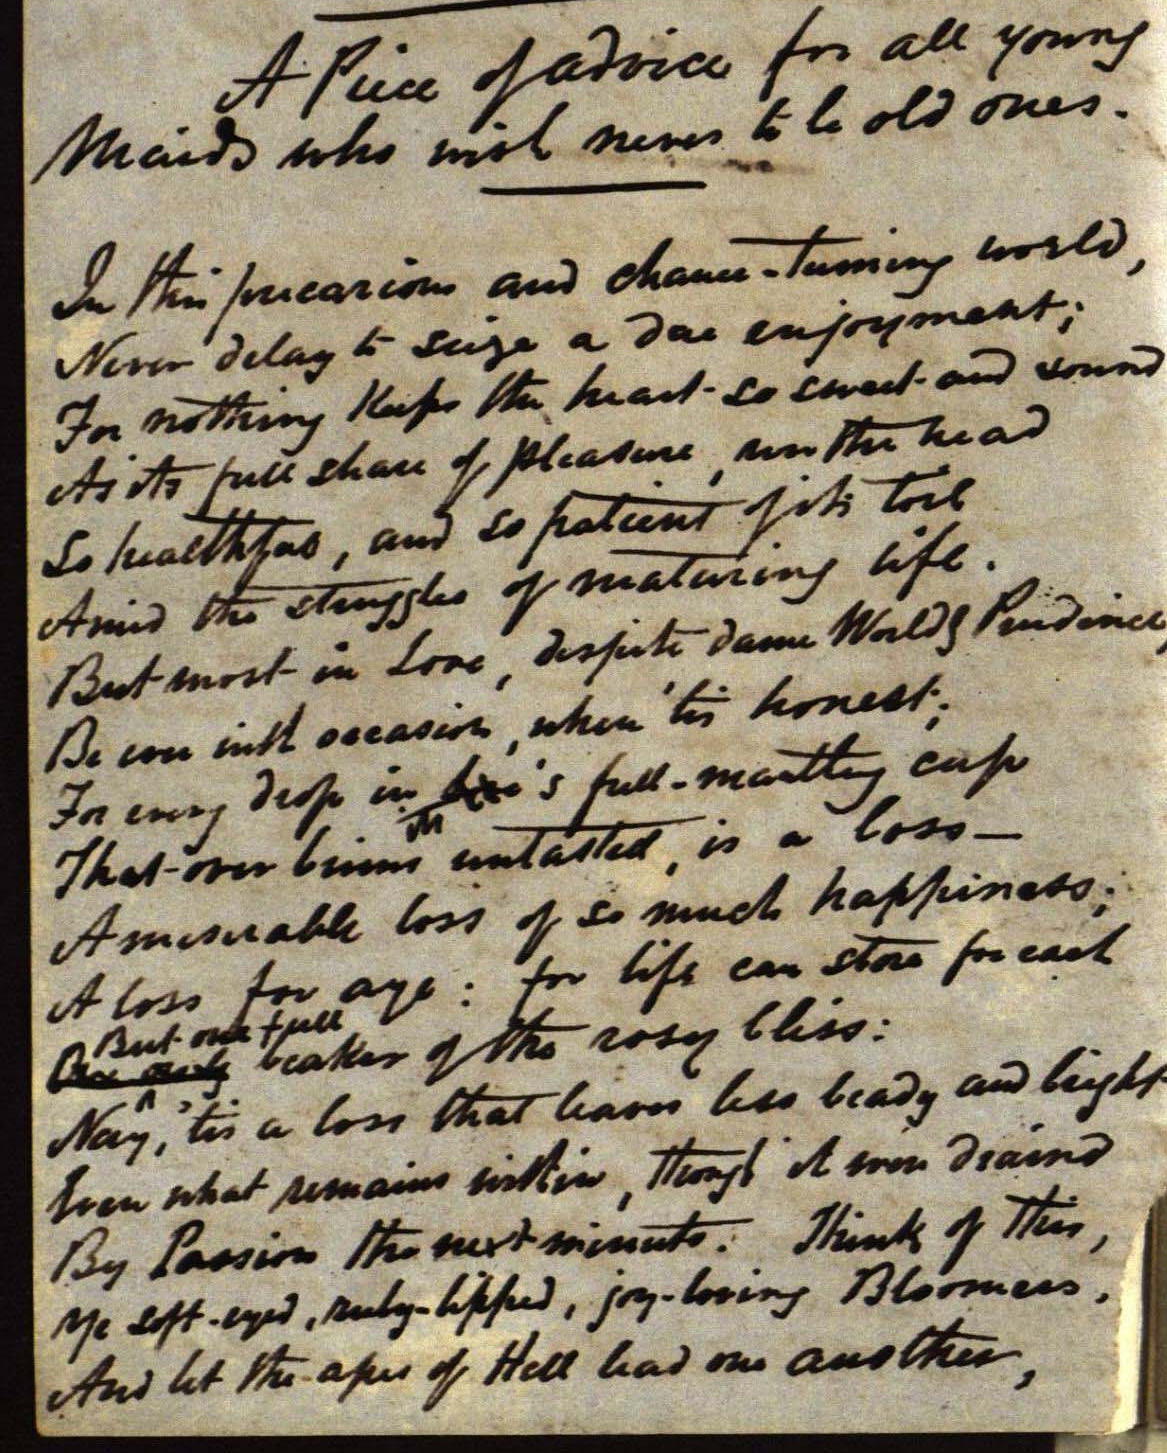 A Piece of advice for all young
Maids who wish never to be old ones.
In this precarious and chance-turning world,
Never delay to seize a due enjoyment;
For nothing keeps the heart so sweet and sound
As its full share of pleasure, nor the head
So healthful, and so patient of its toil
Amid the struggles of maturing life.
But most in Love, despite dame World's Prudence,
Be ever with occasion, when 'tis honest;
For every drop in 's full-mantling cup
That over brims untasted, is a loss—
A miserable loss of so much happiness;
A loss for aye: for life can store for each
But one full
One only beaker of the rosy bliss:
Nay, 'tis a loss that leaves less beady and bright
Even what remains within, though it were draind
By Passion the next minute. Think of this,
Ye soft-eyed, ruby-lipped, joy-loving Bloomers.
And let the apes of Hell lead one another,